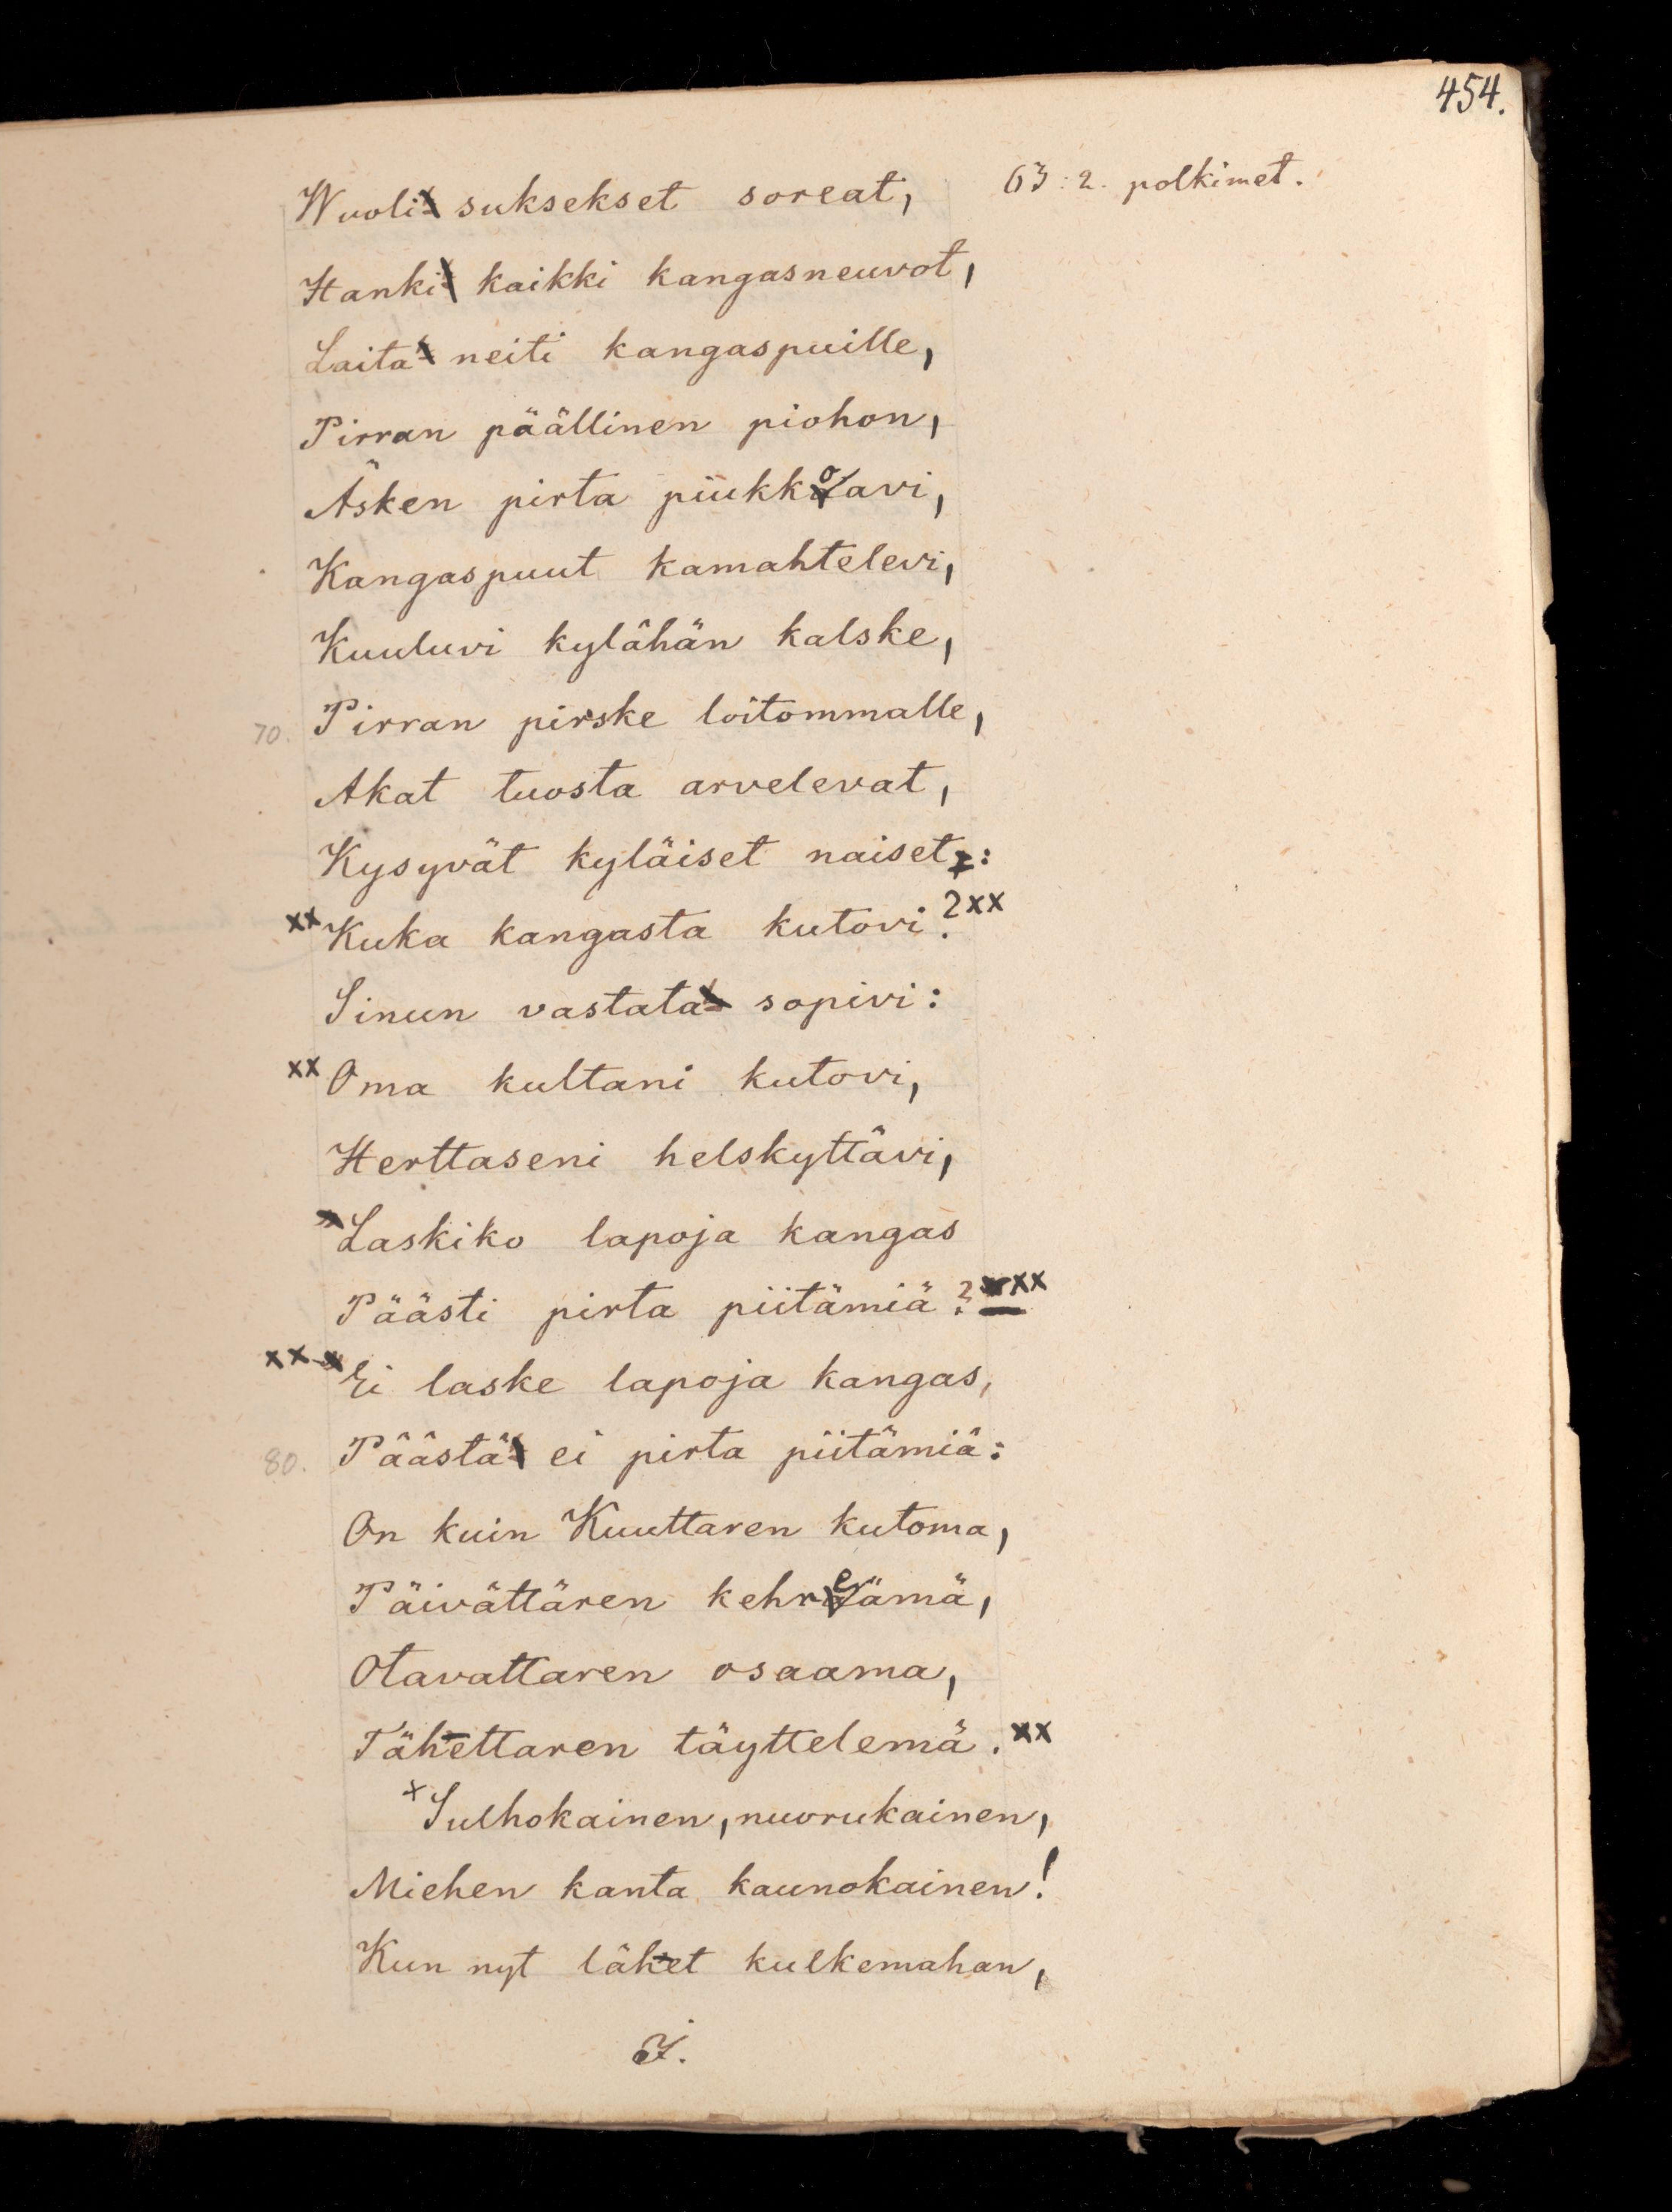 454.
63:2. polkimet.
Wuoli suksekset soreat,
Hanki kaikki kangasneuvot,
Laita neiti kangaspuille,
Pirran päällinen piohon,
Äsken pirta piukkoavi,
Kangaspuut kamahtelevi,
Kuuluvi kylähän kalske,
70. Pirran pirske loitommalle,
Akat tuosta arvelevat,
Kysyvät kyläiset naiset:
xx Kuka kangasta kutovi? xx
Sinun vastata sopivi:
xx Oma kultani kutovi,
Herttaseni helskyttävi,
Laskiko lapoja kangas
Päästi pirta piitämiä? xx
xx Ei laske lapoja kangas,
80. Päästä ei pirta piitämiä:
On kuin Kuuttaren kutoma,
Päivättären kehreämä,
Otavattaren osaama,
Tähettaren täyttelemä. xx
x Sulhokainen, nuorukainen,
Miehen kanta kaunokainen!
Kun nyt lähet kulkemahan,